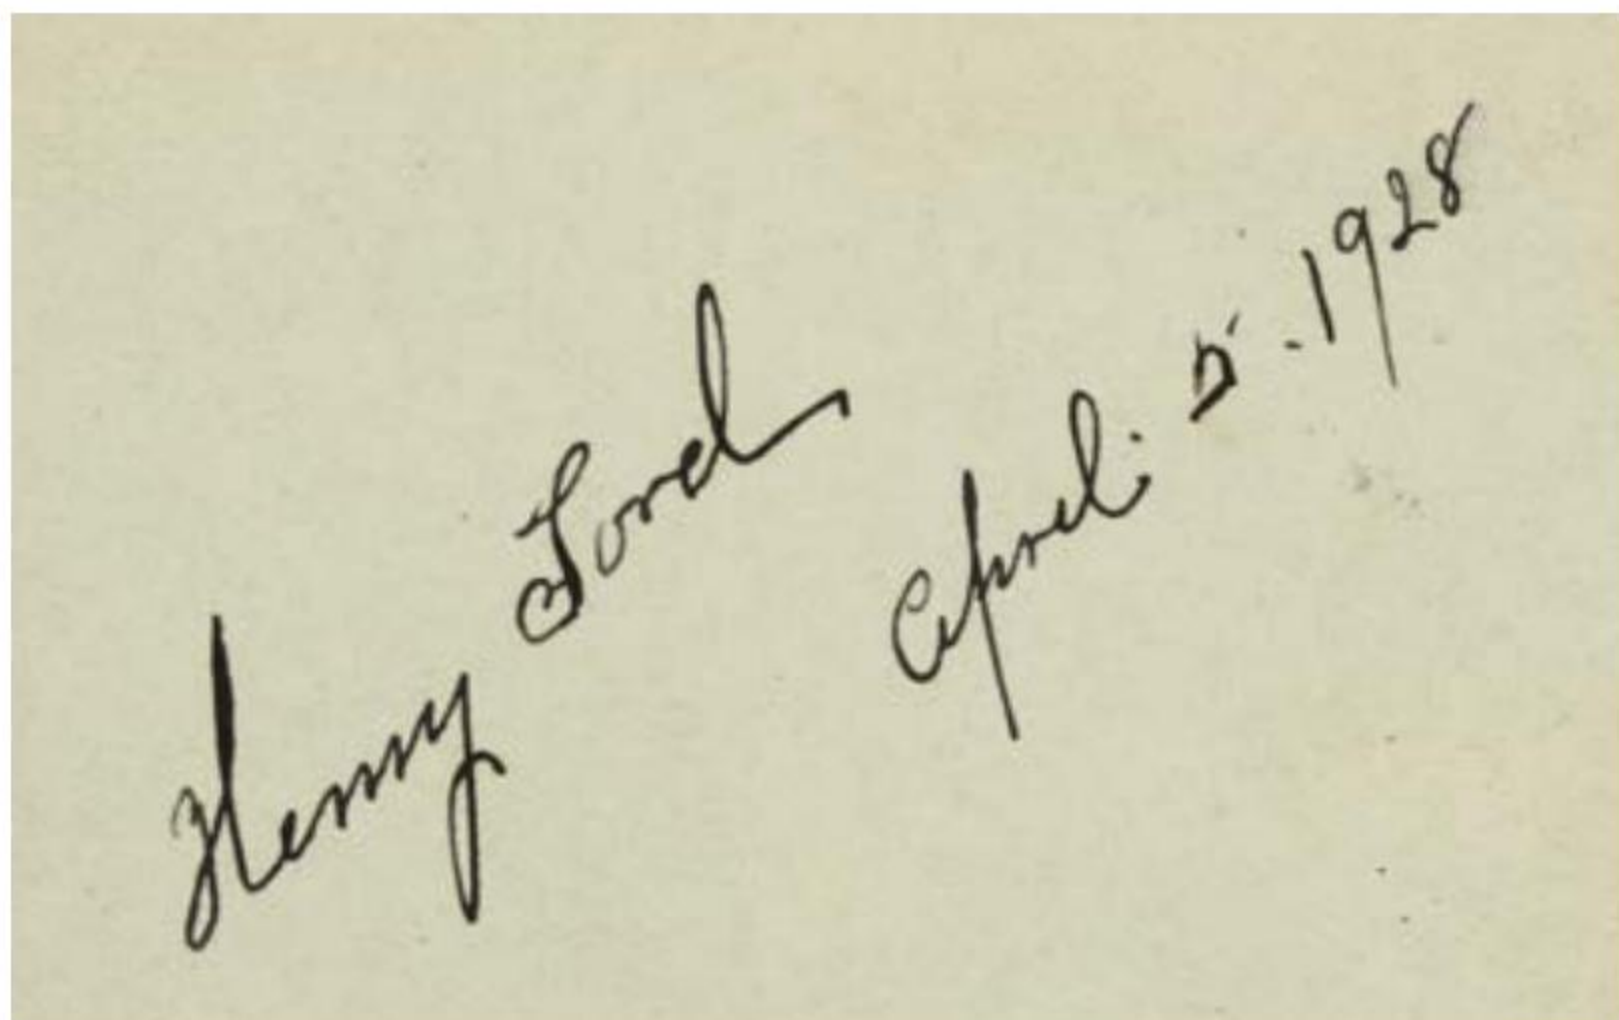 Henry Ford
April 5-1928